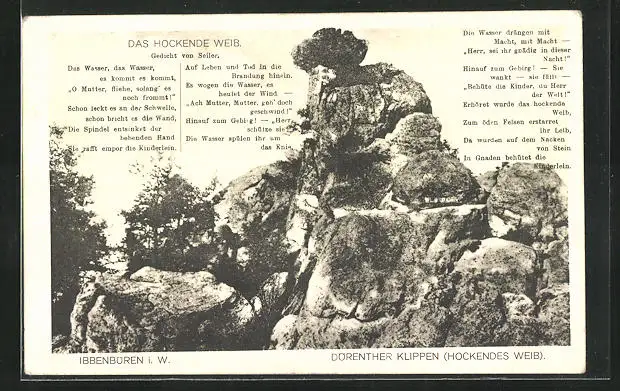 DAS HOCKENDE WEIB.
Gedicht von Seiler.
Das Wasser, das Wasser,
es kommt es kommt,
„O Mutter, fliehe, solang' es
noch frommt!"
Schon leckt es an der Schwelle,
schon bricht es die Wand,
Die Spindel entsinket der
bebenden Hand
Sie rafft empor die Kinderlein.
Auf Leben und Tod in die
Brandung hinein.
Es wogen die Wasser, es
heulet der Wind —
„Ach Mutter, Mutter, geh' doch
geschwind!"
Hinauf zum Gebirg! — „Herr,
schütze sie!"
Die Wasser spülen ihr um
das Knie.
Die Wasser drängen mit
Macht, mit Macht —
„Herr, sei ihr gnädig in dieser
Nacht!"
Hinauf zum Gebirg! — Sie
wankt — sie fällt —
„Behüte die Kinder, du Herr
der Welt!"
Erhöret wurde das hockende
Weib,
Zum öden Felsen erstarret
ihr Leib,
Da wurden auf dem Nacken
von Stein
In Gnaden behütet die
Kinderlein.
IBBENBÜREN i. W.
DÖRENTHER KLIPPEN (HOCKENDES WEIB).